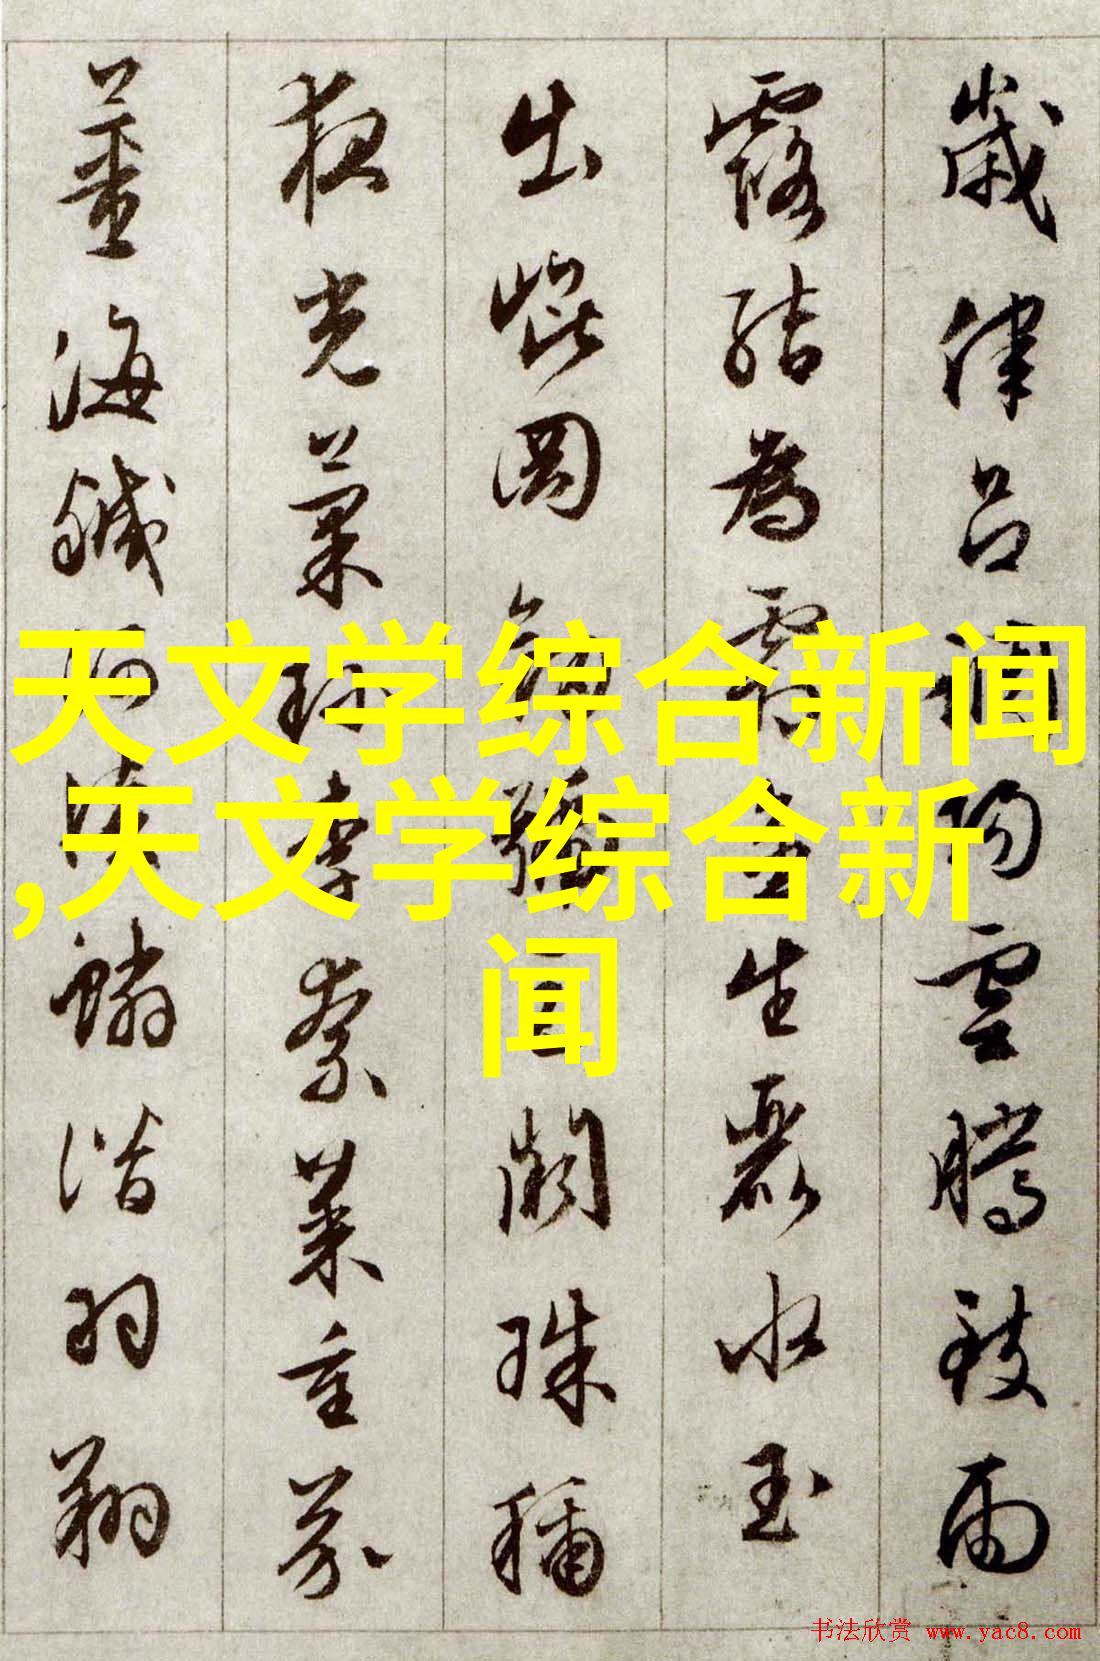 歲律呂調陽雲騰致雨
露結為霜金生麗水玉
出崐岡劍號巨闕珠稱
夜光菓珍李柰菜重芥
薑海鹹河淡鱗潛羽翔
天文学综合新闻
,天文学综合新
闻
书法欣赏 www.yac8.com